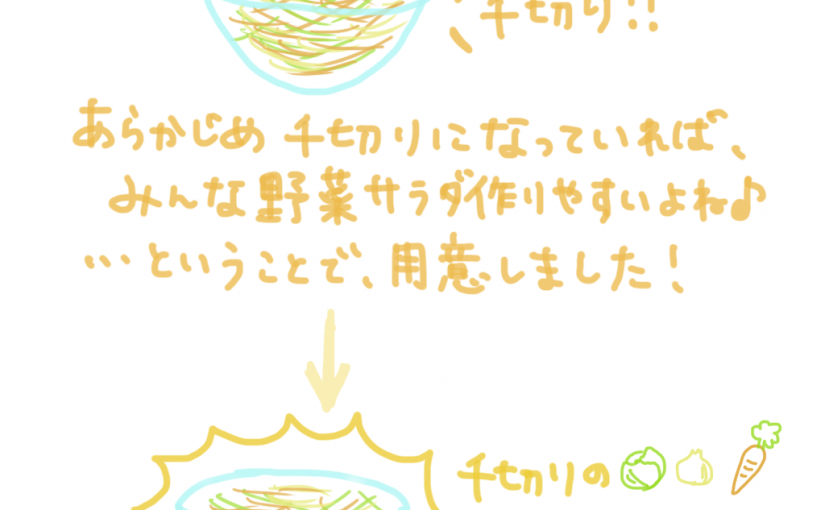 千切り!!
あらかじめ千切りになっていれば、
みんな野菜サラダ作りやすいよね♪
…ということで、用意しました!
千切りの